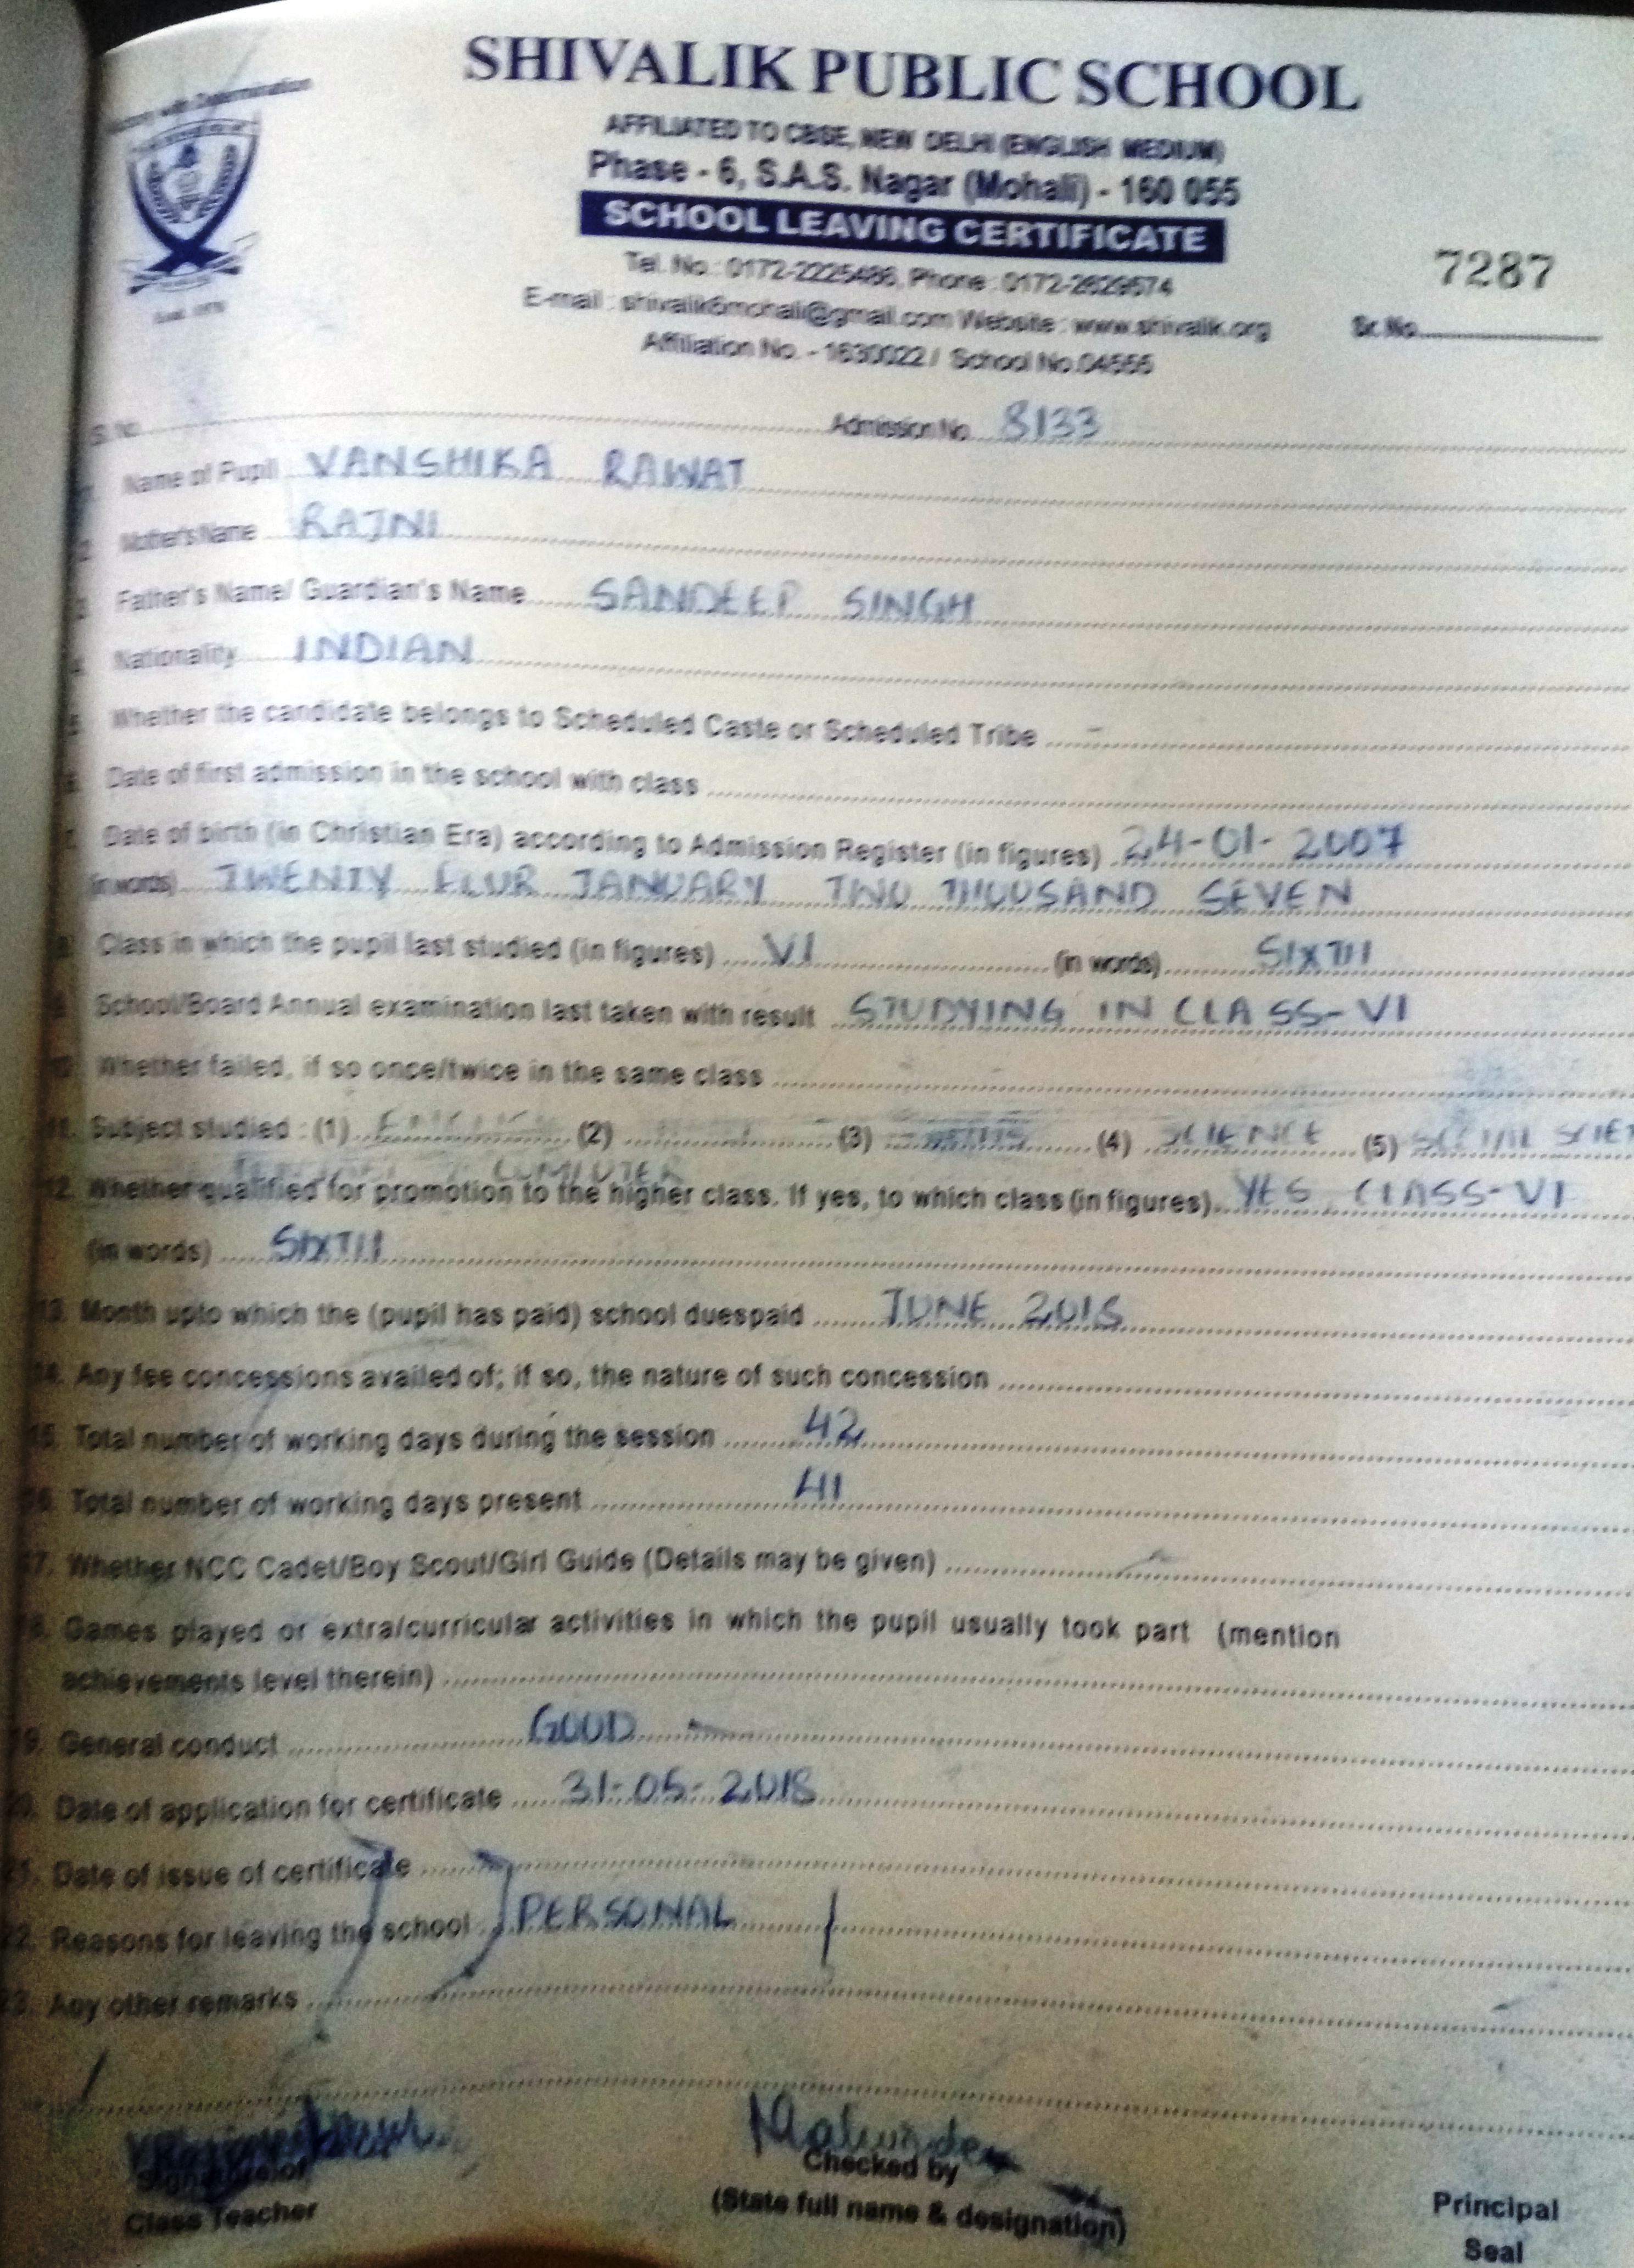 SHIVALIK PUBLIC SCHOOL
AFFILIATED TO CBSE, NEW DELHI (ENGLISH MEDIUM)
Phase - 6, S.A.S. Nagar (Mohali) - 160 055
SCHOOL LEAVING CERTIFICATE
7287
Tel. No : 0172-2225486, Phone : 0172-2629574
E-mail : shivalik6mohali@gmail.com Website : www.shivalik.org
Sr. No.
Affiliation No. - 1630022 / School No.04555
Admission No. 8133
Name of Pupil VANSHIKA RAWAT
Mother's Name RAJNI
Father's Name/ Guardian's Name SANDEEP SINGH
Nationality INDIAN
Whether the candidate belongs to Scheduled Caste or Scheduled Tribe -
Date of first admission in the school with class
Date of birth (in Christian Era) according to Admission Register (in figures) 24-01-2007
(in words) TWENTY FOUR JANUARY TWO THOUSAND SEVEN
Class in which the pupil last studied (in figures) VI (in words) SIXTH
School/Board Annual examination last taken with result STUDYING IN CLASS-VI
Whether failed, if so once/twice in the same class
11. Subject studied : (1) ENGLISH (2) (3) (4) SCIENCE (5) SOCIAL SCIE
COMPUTER
12. Whether qualified for promotion to the higher class. If yes, to which class (in figures) YES, CLASS-VI
(in words) SIXTH
13. Month upto which the (pupil has paid) school duespaid JUNE 2018
14. Any fee concessions availed of; if so, the nature of such concession
15. Total number of working days during the session 42
16. Total number of working days present 41
17. Whether NCC Cadet/Boy Scout/Girl Guide (Details may be given)
18. Games played or extra/curricular activities in which the pupil usually took part (mention
achievements level therein)
19. General conduct GOOD
20. Date of application for certificate 31-05-2018
21. Date of issue of certificate
22. Reasons for leaving the school PERSONAL
23. Any other remarks
Signature of
Class Teacher
Checked by
(State full name & designation)
Principal
Seal